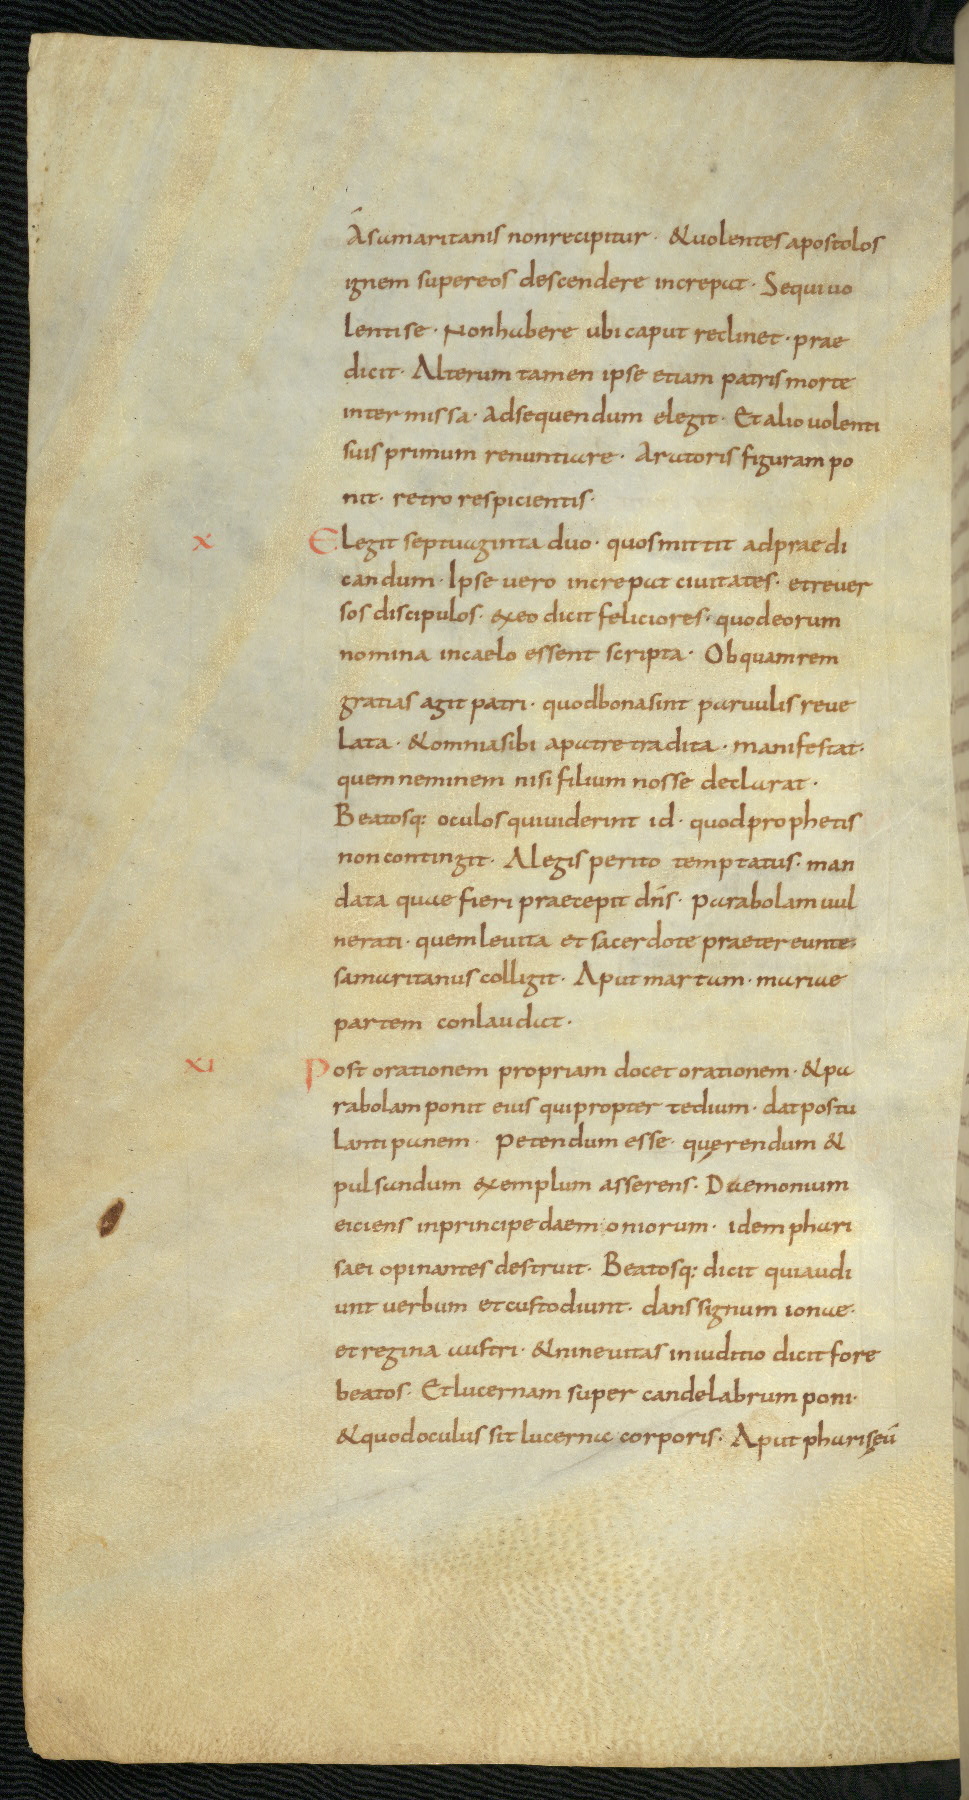 Á samaritanis non recipitur · & uolentes apostolos
ignem super eos descendere increpat · Sequi uo
lenti se · Non habere ubi caput reclinet · prae
dicit · Alterum tamen ipse etiam patris morte
intermissa · ad sequendum elegit · Et alio uolenti
suis primum renuntiare · Aratoris figuram po
nit · retro respicientis ·
X Elegit septuaginta duo · quos mittit ad praedi
candum · Ipse uero increpat ciuitates · et reuer
sos discipulos · ex eo dicit feliciores · quod eorum
nomina in caelo essent scripta · Ob quam rem
gratias agit patri · quod bona sint paruulis reue
lata · & omnia sibi a patre tradita · manifestat ·
quem neminem nisi filium nosse declarat ·
Beatosq: oculos qui uiderint id · quod prophetis
non contingit · A legis perito temptatus · man
data quae fieri praecepit dñs · Parabolam uul
nerati · quem leuita et sacerdote praetereunte ·
samaritanus colligit · Aput martam · mariae
partem conlaudat ·
XI Post orationem propriam docet orationem · & pa
rabolam ponit eius qui propter tedium · dat postu
lanti panem · Petendum esse · quęrendum &
pulsandum exemplum asserens · Daemonium
eiciens in principe daemoniorum · idem phari
saei opinantes destruit · Beatosq: dicit qui audi
unt uerbum et custodiunt · dans signum ionae ·
et regina austri · & nineuitas in iuditio dicit fore
beatos · Et lucernam super candelabrum poni ·
& quod oculus sit lucerna corporis · Aput pharisęũ